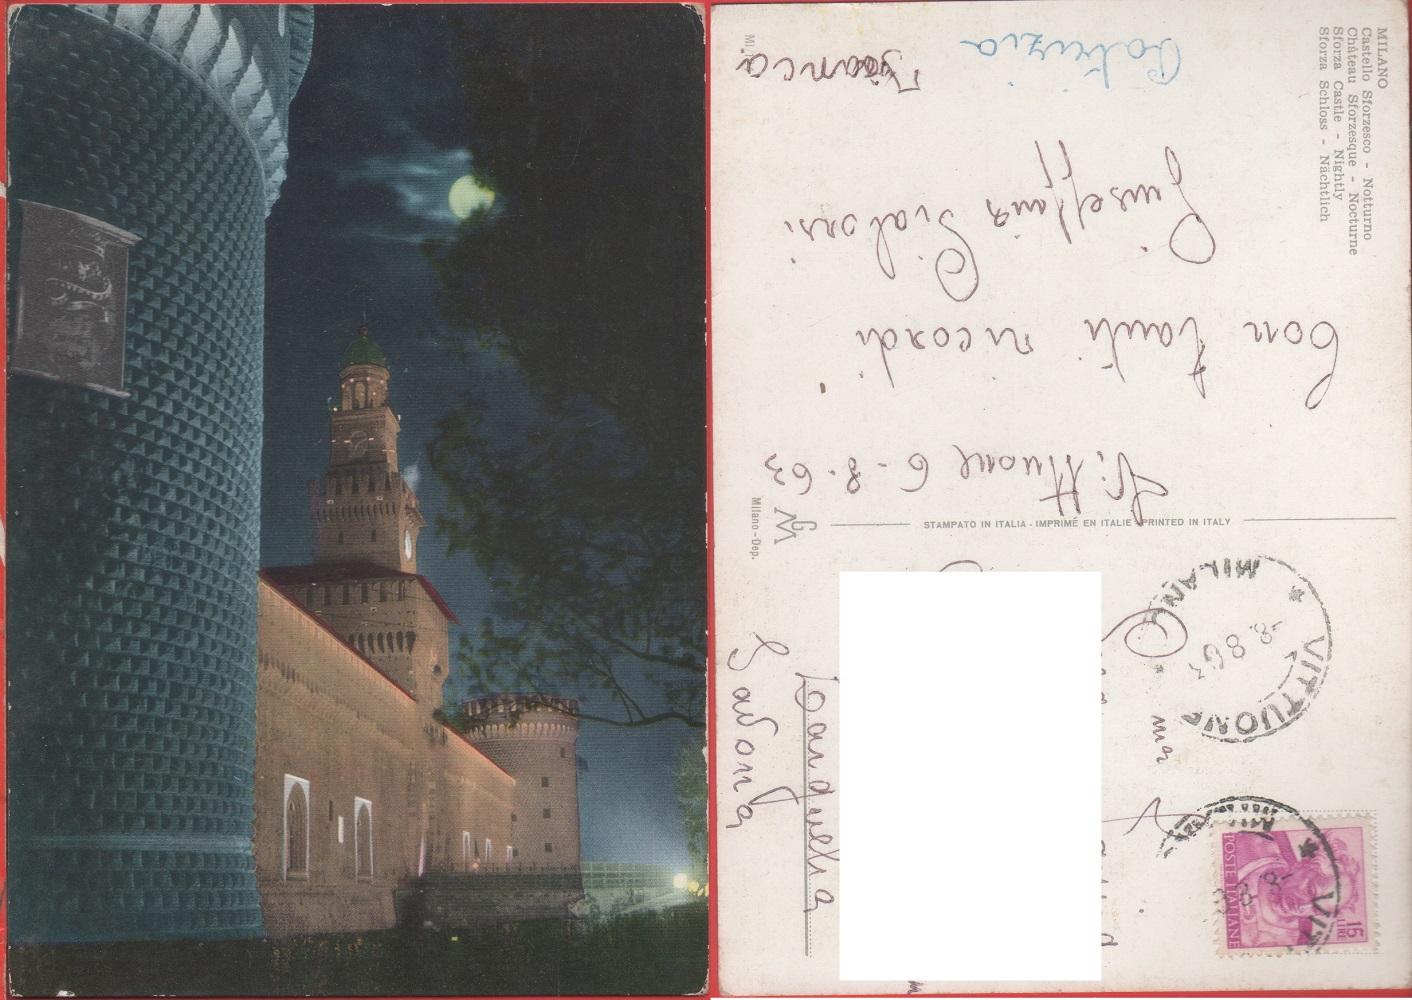 MILANO
Castello Sforzesco - Notturno
Château Sforzesque - Nocturne
Sforza Castle - Nightly
Sforza Schloss - Nächtlich
Patrizia
Bianca
Con tanti ricordi
Vittuone 6-8-63
STAMPATO IN ITALIA - IMPRIMÉ EN ITALIE - PRINTED IN ITALY
Milano - Dep.
VITTUONE
MILANO
-8.8 63
POSTE ITALIANE
15
LIRE
Laigueglia
Savona